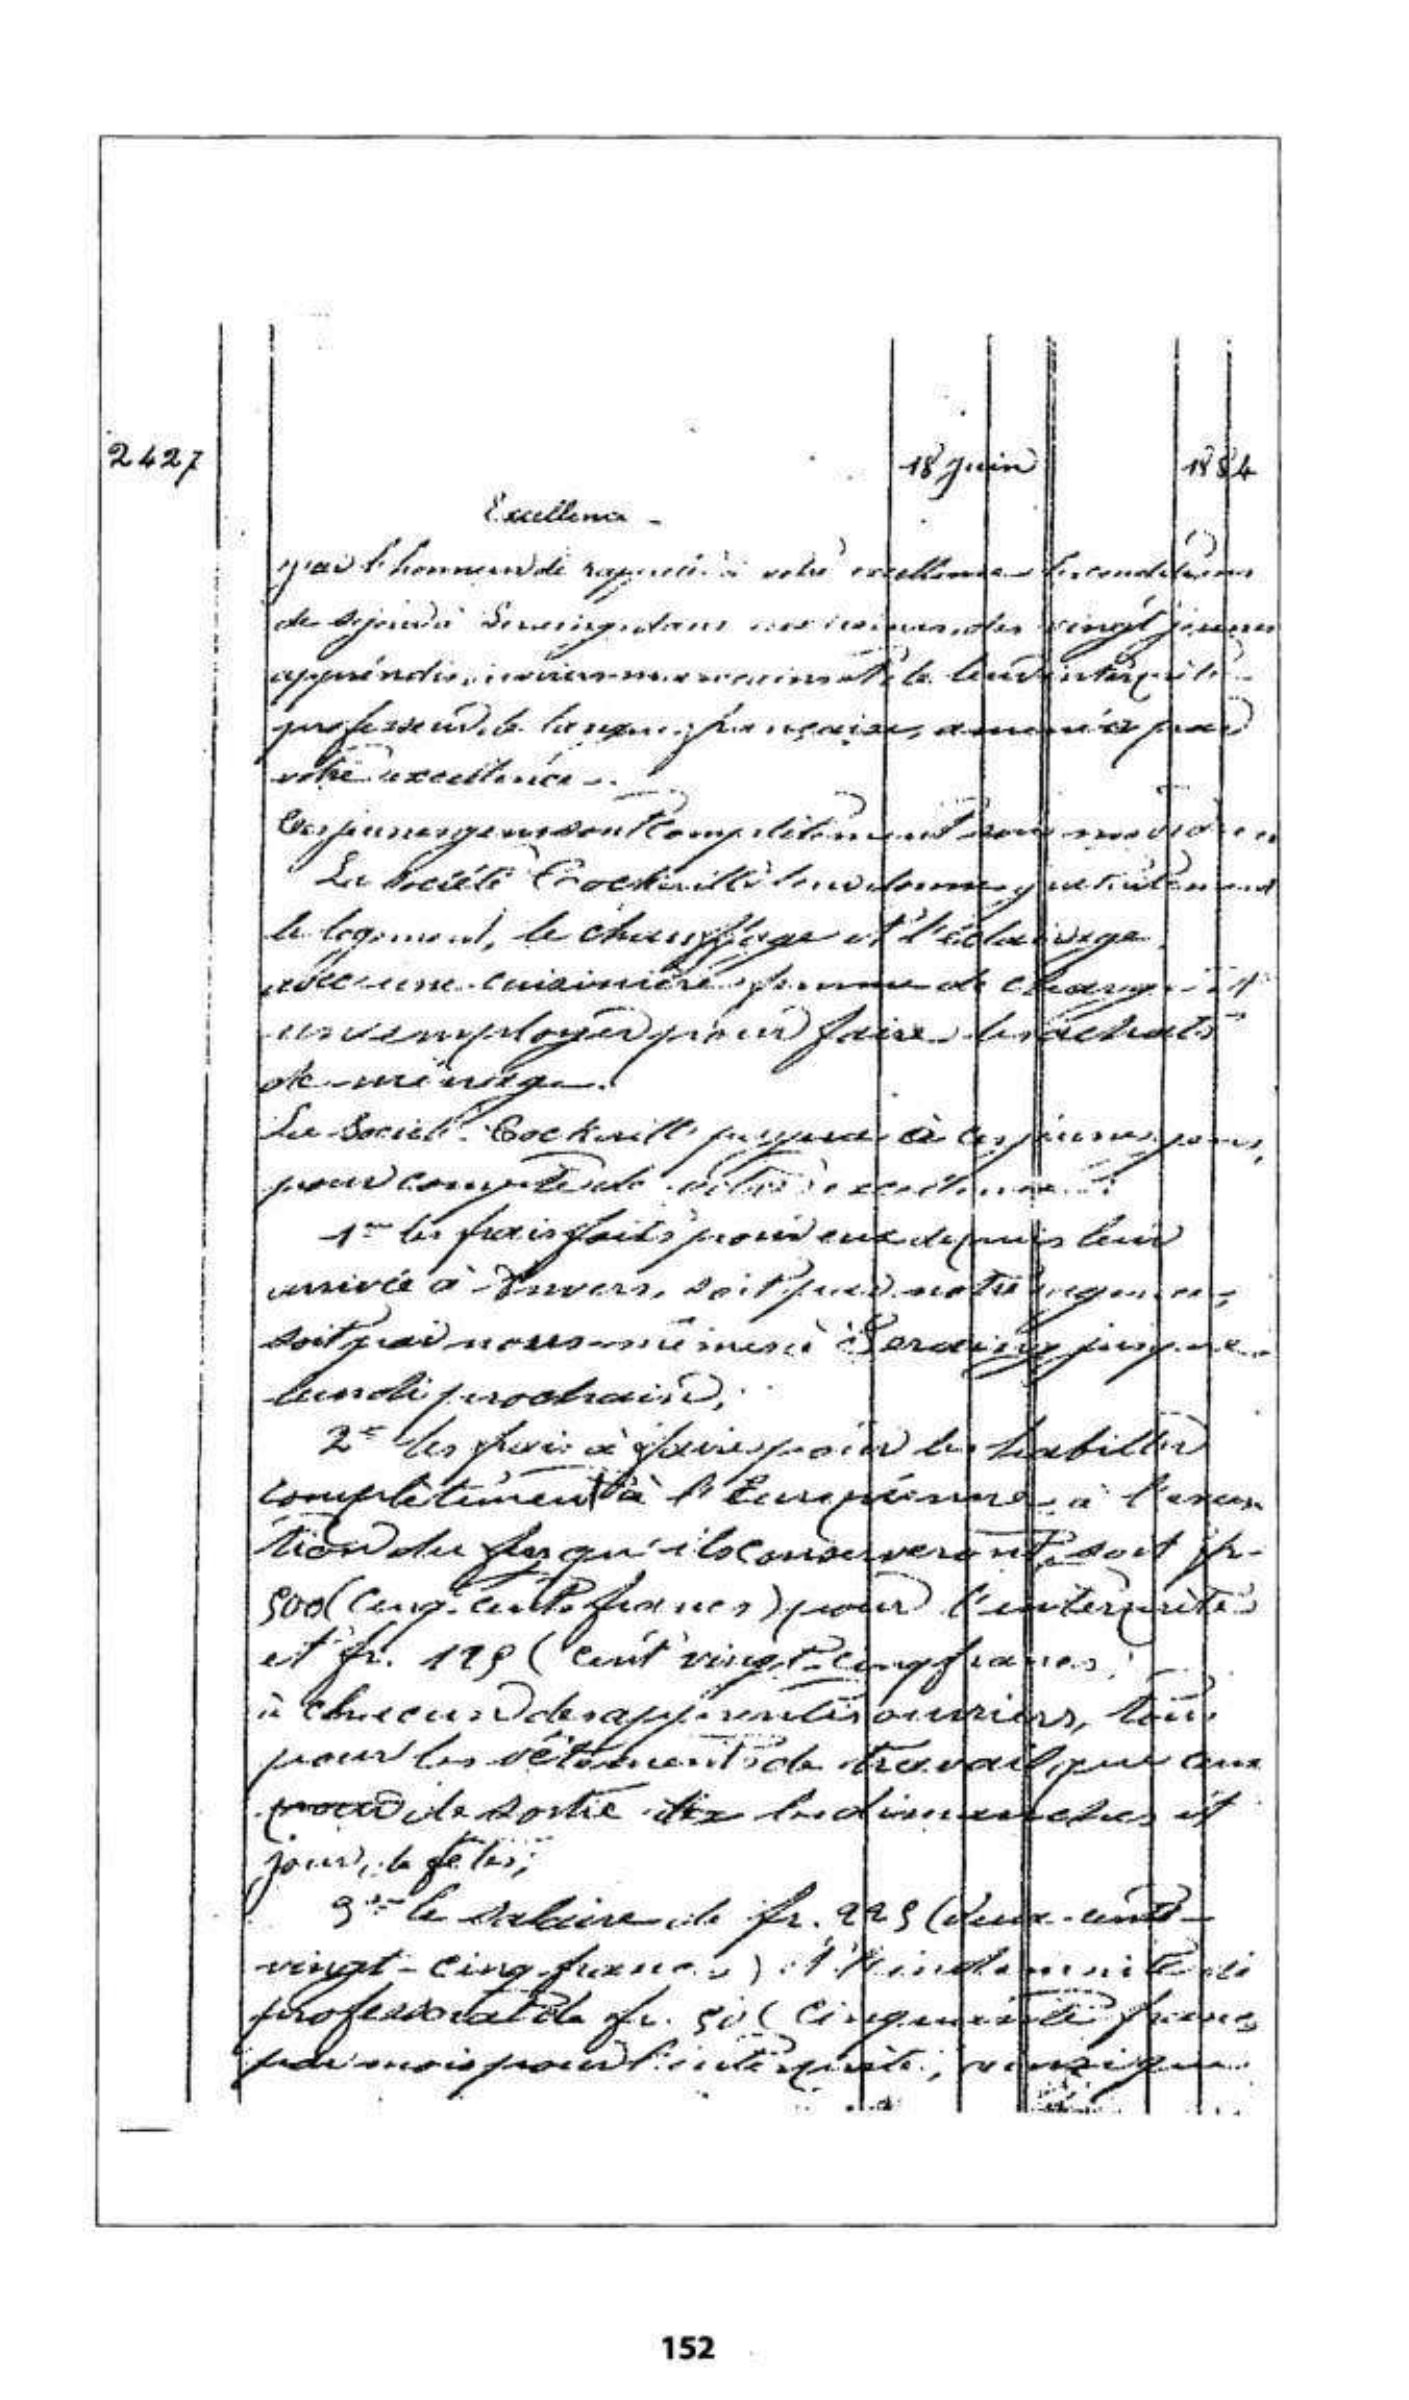 2427
18 Juin 1884
Excellence -
j'ai l'honneur de rappeler à votre excellence les conditions
de séjour à Seraing, dans nos usines des vingt jeunes
apprentis, ouvriers marocains et de leur interprète
professeur de langue française, amenés par
votre excellence -.
Ces jeunes gens sont complètement sous
La Société Cockerill leur donne gratuitement
le logement, le chauffage et l'éclairage
avec une cuisinière femme de charge et
un employer pour faire les achats
de ménage.
La Société Cockerill payera à ces jeunes gens,
pour compte de votre excellence :
1° les frais faits pour eux depuis leur
arrivée à Anvers, soit par notre agence,
soit par nous-mêmes à Seraing jusque
lundi prochain;
2° les frais à faire pour les habiller
complètement à l'Européenne à l'excep
tion du fez qu'ils conserveront, soit fr.
500 (cinq-cents francs) pour l'interprète
et fr. 125 (cent vingt-cinq francs
à chacun des apprentis ouvriers, tant
pour les vêtements de travail, que ceux
pour de sortie les dimanches et
jours de fêtes;
3° le salaire de fr. 225 (deux-cents-
vingt-cinq francs) et l'indemnité de
professorat de fr. 50 (cinquante francs
par mois pour l'interprète, ainsi que
152